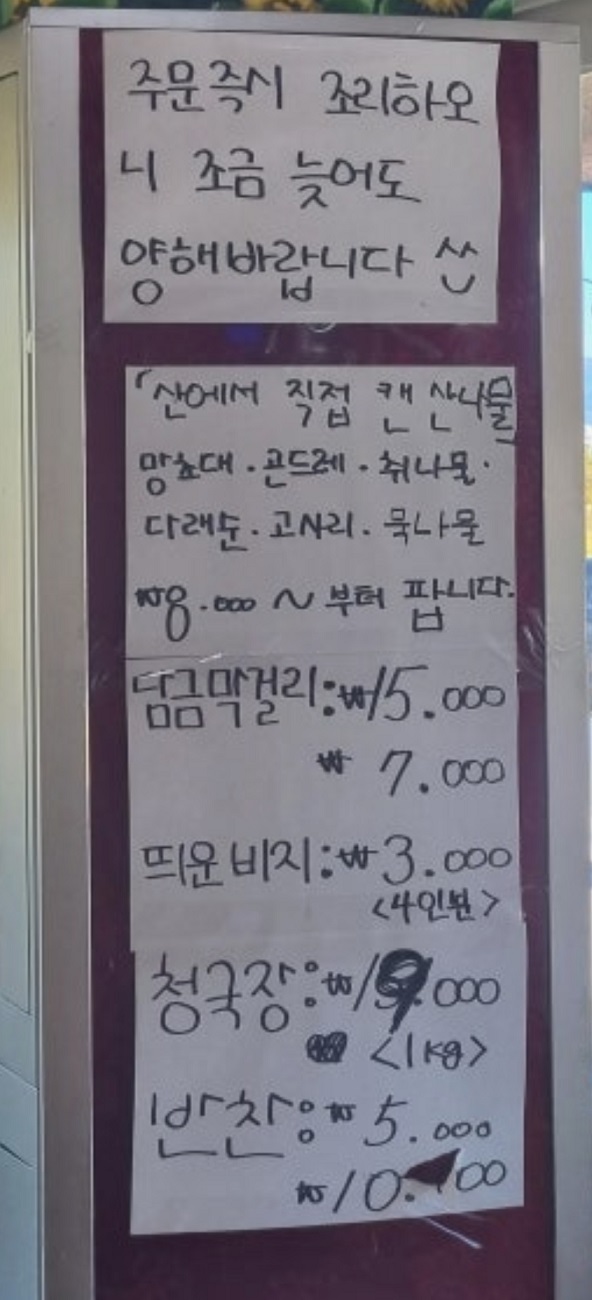 주문즉시 조리하오
니 조금 늦어도
양해바랍니다
「산에서 직접 캔 산나물」
망초대 · 곤드레 · 취나물 ·
다래순 · 고사리 · 묵나물
₩8.000 ~ 부터 팝니다.
담금막걸리:₩15.000
₩ 7.000
띄운비지:₩3.000
<4인분>
청국장:₩
<1kg>
반찬:₩5.000